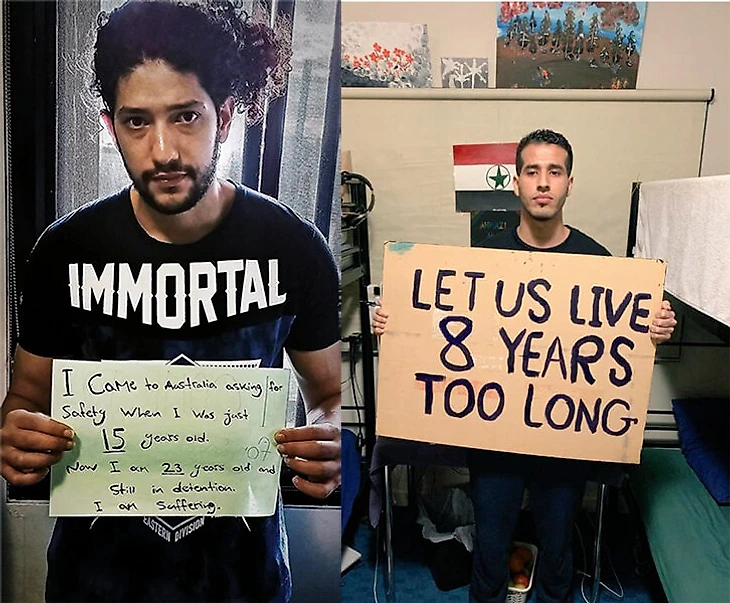 IMMORTAL
I Came to Australia asking for
Safety When I was just
15 years old.
Now I am 23 years old and
Still in detention.
I am Suffering.
EASTERN DIVISION
LET US LIVE
8 YEARS
TOO LONG